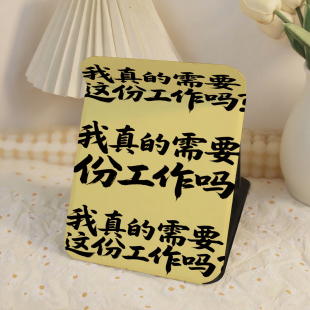 我真的需要
这份工作吗?
我真的需要
份工作吗
我真的需要
这份工作吗?